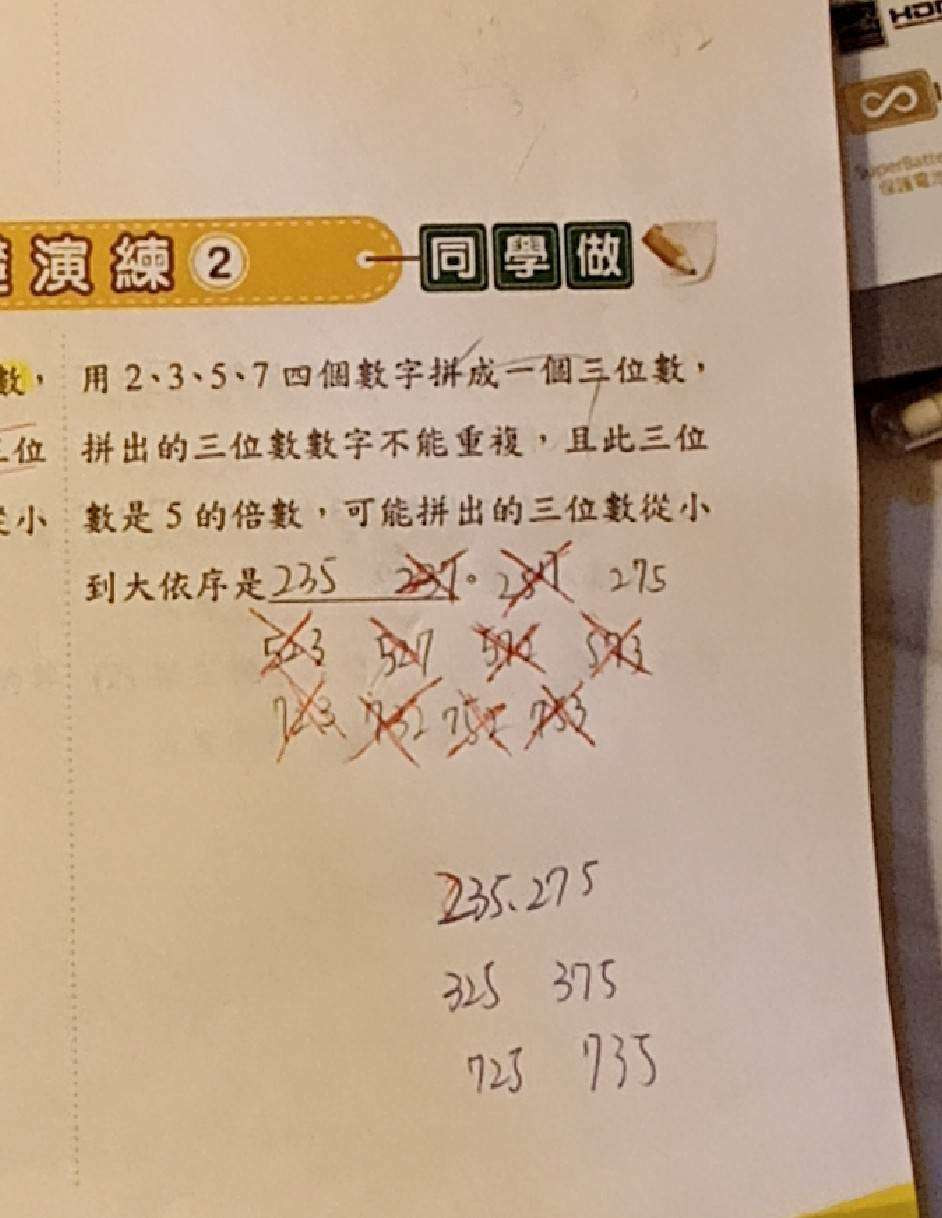 HDI
∞
SuperBatte
保護電池
演練2 同學做
數，
用2、3、5、7四個數字拼成一個三位數，
位
拼出的三位數數字不能重複，且此三位
小
數是5的倍數，可能拼出的三位數從小
到大依序是235 237。257 275
523 527 572 573
723 732 752 753
235、275
325 375
725 735